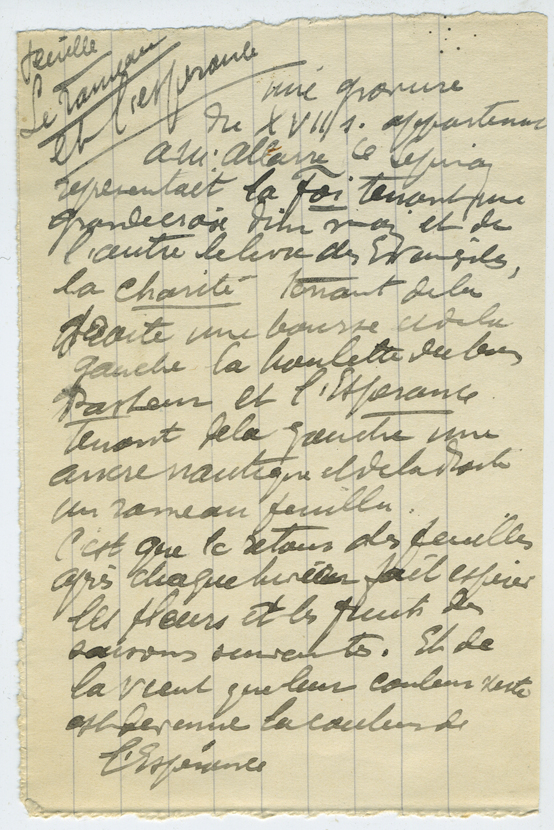 feuillé
Le Rameau
et l'espérance
une gravure
du XVII s. appartenant
à M. Allarre le
représentait la foi tenant une
grande croix d'un main et de
l'autre le livre des Evangiles,
la charité tenant de la
droite une bourse et de la
gauche la houlette du bon
Pasteur et l'Espérance
tenant de la gauche une
ancre nautique et de la droite
un rameau feuillu.
C'est que le retour des feuilles
après chaque hiver fait espérer
les fleurs et les fruits des
saisons suivantes. Et de
la vient que leur couleur verte
est devenue la couleur de
l'Espérance